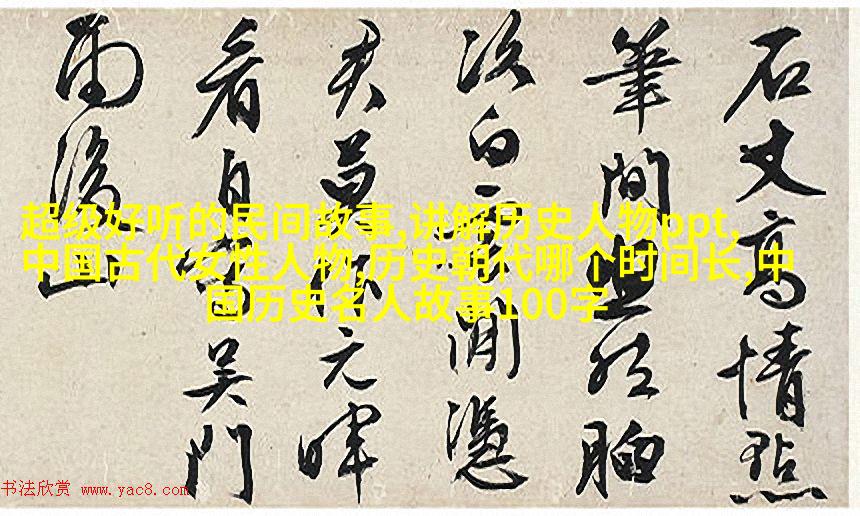 石丈高情點
筆間胸
次白雲閒憑
君莫作元暉
看自寫吳門
雨後山
超级好听的民间故事,讲解历史人物ppt,
中国古代女性人物,历史朝代哪个时间长,中
国历史名人故事100字
书法欣赏 www.yac8.com